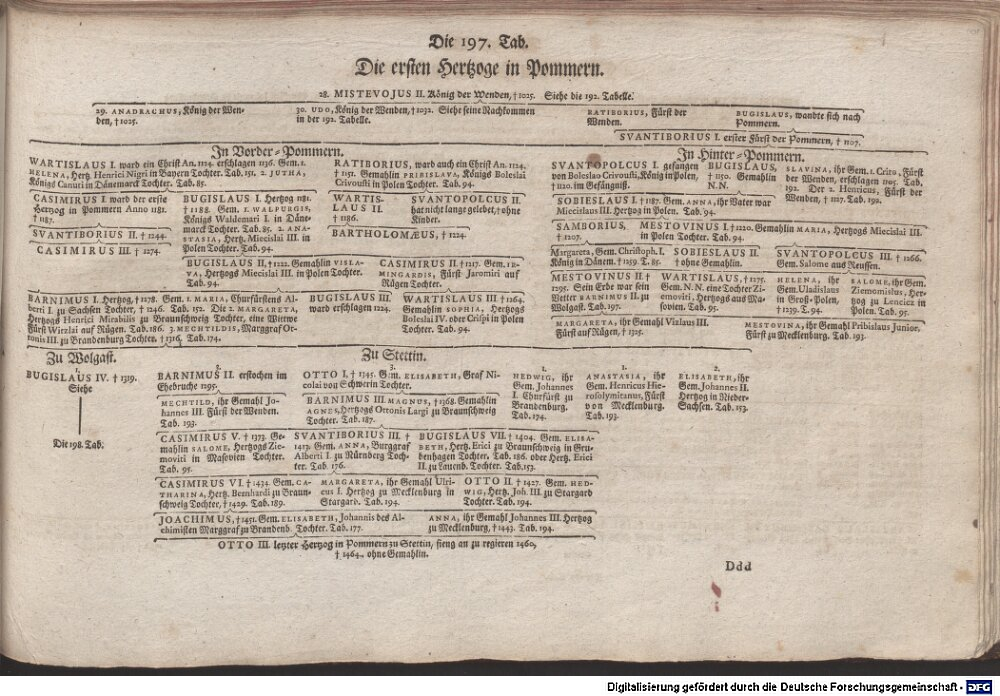 Die 197. Tab.
Die ersten Hertzoge in Pommern.
28. MISTEVOJUS II. König der Wenden, † 1025. Siehe die 192. Tabelle.
29. ANADRACHUS, König der Wen-
den, † 1025.
30. UDO, König der Wenden, † 1032. Siehe seine Nachkommen
in der 192. Tabelle.
RATIBORIUS, Fürst der
Wenden.
BUGISLAUS, wandte sich nach
Pommern.
SVANTIBORIUS I. erster Fürst der Pommern, † 1107.
In Vorder-Pommern.
WARTISLAUS I. ward ein Christ An. 1124. erschlagen 1136. Gem. 1.
HELENA, Hertz. Henrici Nigri in Bayern Tochter. Tab. 151. 2. JUTHA,
Königs Canuti in Dänemarck Tochter. Tab. 85.
RATIBORIUS, ward auch ein Christ An. 1124.
† 1151. Gemahlin PRIBISLAVA, Königs Boleslai
Crivousti in Polen Tochter. Tab. 94.
CASIMIRUS I. ward der erste
Hertzog in Pommern Anno 1181.
† 1187.
BUGISLAUS I. Hertzog 1181.
† 1188. Gem. 1. WALPURGIS,
Königs Waldemari I. in Däne-
marck Tochter. Tab. 85. 2. ANA-
STASIA, Hertz. Miecislai III. in
Polen Tochter. Tab. 94.
WARTIS-
LAUS II.
† 1186.
SVANTOPOLCUS II.
hat nicht lange gelebet, † ohne
Kinder.
SVANTIBORIUS II. † 1244.
BARTHOLOMÆUS, † 1224.
CASIMIRUS III. † 1274.
BUGISLAUS II. † 1222. Gemahlin VISLA-
VA, Hertzogs Miecislai III. in Polen Tochter.
Tab. 94.
CASIMIRUS II. † 1217. Gem. IR-
MINGARDIS, Fürst Jaromiri auf
Rügen Tochter.
BARNIMUS I. Hertzog, † 1278. Gem. 1. MARIA, Churfürstens Al-
berti I. zu Sachsen Tochter, † 1246. Tab. 152. Die 2. MARGARETA,
Hertzogs Henrici Mirabilis zu Braunschweig Tochter, eine Witwe
Fürst Wirzlai auf Rügen. Tab. 186. 3. MECHTILDIS, Marggraf Ot-
tonis III. zu Brandenburg Tochter. † 1316. Tab. 174.
BUGISLAUS III.
ward erschlagen 1224.
WARTISLAUS III. † 1264.
Gemahlin SOPHIA, Hertzogs
Boleslai IV. oder Crispi in Polen
Tochter. Tab. 94.
In Hinter-Pommern.
SVANTOPOLCUS I. gefangen
von Boleslao Crivousti, König in Polen,
† 1120. im Gefängniß.
BUGISLAUS,
† 1150. Gemahlin
N.N.
SLAVINA, ihr Gem. 1. Crito, Fürst
der Wenden, erschlagen 1105. Tab.
192. Der 2. Henricus, Fürst der
Wenden, † 1127. Tab. 192.
SOBIESLAUS I. † 1187. Gem. ANNA, ihr Vater war
Miecislaus III. Hertzog in Polen. Tab. 94.
SAMBORIUS,
† 1207.
MESTOVINUS I. † 1220. Gemahlin MARIA, Hertzogs Miecislai III.
in Polen Tochter. Tab. 94.
Margareta, Gem. Christoph. I.
König in Dänem. † 1259. T. 85.
SOBIESLAUS II.
† ohne Gemahlin.
SVANTOPOLCUS III. † 1266.
Gem. Salome aus Reussen.
MESTOVINUS II. †
1295. Sein Erbe war sein
Vetter BARNIMUS II. zu
Wolgast. Tab. 197.
WARTISLAUS, † 1275.
Gem. N. N. eine Tochter Zi-
emoviti, Hertzogs aus Ma-
sovien. Tab. 95.
HELENA, ihr
Gem. Uladislaus
in Groß-Polen,
† 1239. T. 94.
SALOME, ihr Gem.
Ziemomislus, Her-
tzog zu Lencicz in
Polen. Tab. 95.
MARGARETA, ihr Gemahl Vizlaus III.
Fürst auf Rügen, † 1325.
MESTOVINA, ihr Gemahl Pribislaus Junior,
Fürst zu Mecklenburg. Tab. 193.
Zu Wolgast.
Zu Stettin.
1.
BUGISLAUS IV. † 1319.
Siehe
Die 198. Tab.
2.
BARNIMUS II. erstochen im
Ehebruche 1295.
3.
OTTO I. † 1345. Gem. ELISABETH, Graf Ni-
colai von Schwerin Tochter.
1.
HEDWIG, ihr
Gem. Johannes
I. Churfürst zu
Brandenburg.
Tab. 174.
1.
ANASTASIA, ihr
Gem. Henricus Hie-
rosolymitanus, Fürst
von Mecklenburg.
Tab. 193.
2.
ELISABETH, ihr
Gem. Johannes II.
Hertzog in Nieder-
Sachsen. Tab. 153.
MECHTILD, ihr Gemahl Jo-
hannes III. Fürst der Wenden.
Tab. 193.
BARNIMUS III. MAGNUS, † 1368. Gemahlin
AGNES, Hertzogs Ottonis Largi zu Braunschweig
Tochter. Tab. 187.
CASIMIRUS V. † 1373. Ge-
mahlin SALOME, Hertzogs Zie-
moviti in Masovien Tochter.
Tab. 95.
SVANTIBORIUS III. †
1413. Gem. ANNA, Burggraf
Alberti I. zu Nürnberg Toch-
ter. Tab. 176.
BUGISLAUS VII. † 1404. Gem. ELISA-
BETH, Hertz. Erici zu Braunschweig in Gru-
benhagen Tochter. Tab. 186. oder Hertz. Erici
II. zu Lauenb. Tochter. Tab. 153.
CASIMIRUS VI. † 1434. Gem. CA-
THARINA, Hertz. Bernhardi zu Braun-
schweig Tochter, † 1429. Tab. 189.
MARGARETA, ihr Gemahl Ulri-
cus I. Hertzog zu Mecklenburg in
Stargard. Tab. 194.
OTTO II. † 1427. Gem. HED-
WIG, Hertz. Joh. III. zu Stargard
Tochter. Tab. 194.
JOACHIMUS, † 1451. Gem. ELISABETH, Johannis des Al-
chimisten Marggraf zu Brandenb. Tochter. Tab. 177.
ANNA, ihr Gemahl Johannes III. Hertzog
zu Mecklenburg, † 1443. Tab. 194.
OTTO III. letzter Hertzog in Pommern zu Stettin, fieng an zu regieren 1460,
† 1464. ohne Gemahlin.
Ddd
Digitalisierung gefördert durch die Deutsche Forschungsgemeinschaft - DFG